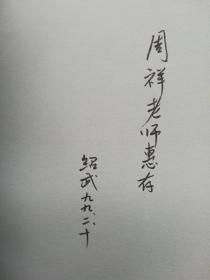 周祥老师惠存
绍武九九.二.十